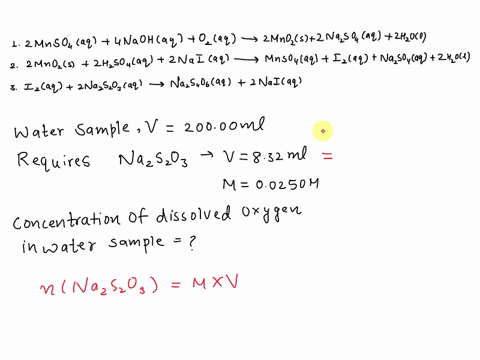 1. 2MnSO₄(aq) + 4NaOH(aq) + O₂(aq) → 2MnO₂(s) + 2Na₂SO₄(aq) + 2H₂O(l)
2. 2MnO₂(s) + 2H₂SO₄(aq) + 2NaI(aq) → MnSO₄(aq) + I₂(aq) + Na₂SO₄(aq) + 2H₂O(l)
3. I₂(aq) + 2Na₂S₂O₃(aq) → Na₂S₄O₆(aq) + 2NaI(aq)
Water sample, V = 200.00ml
Requires Na₂S₂O₃ → V = 8.32 ml =
M = 0.0250M
Concentration of dissolved oxygen
in water sample = ?
n(Na₂S₂O₃) = M×V